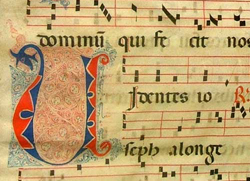 dominũ qui fe cit nos
Videntes io
seph alonge